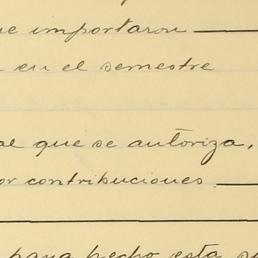 ue importaron
en el semestre
al que se autoriza,
or contribuciones
para hecho esta su